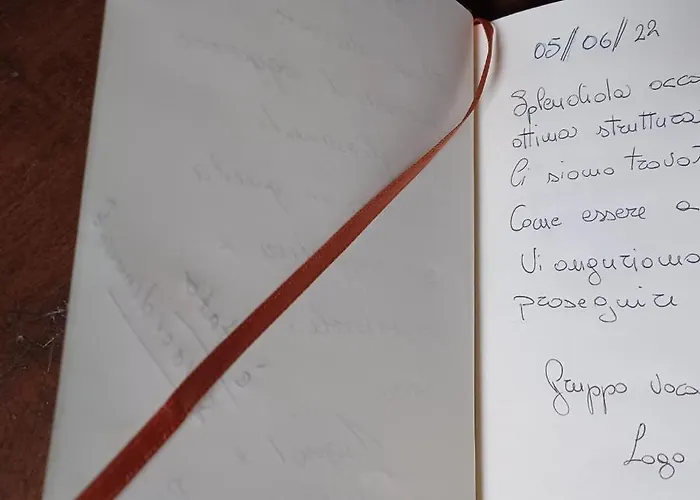 05//06//22
Splendida occa
ottima struttura
Ci siamo trovat
Come essere a
Vi auguriamo
proseguire
Gruppo voca
Logo